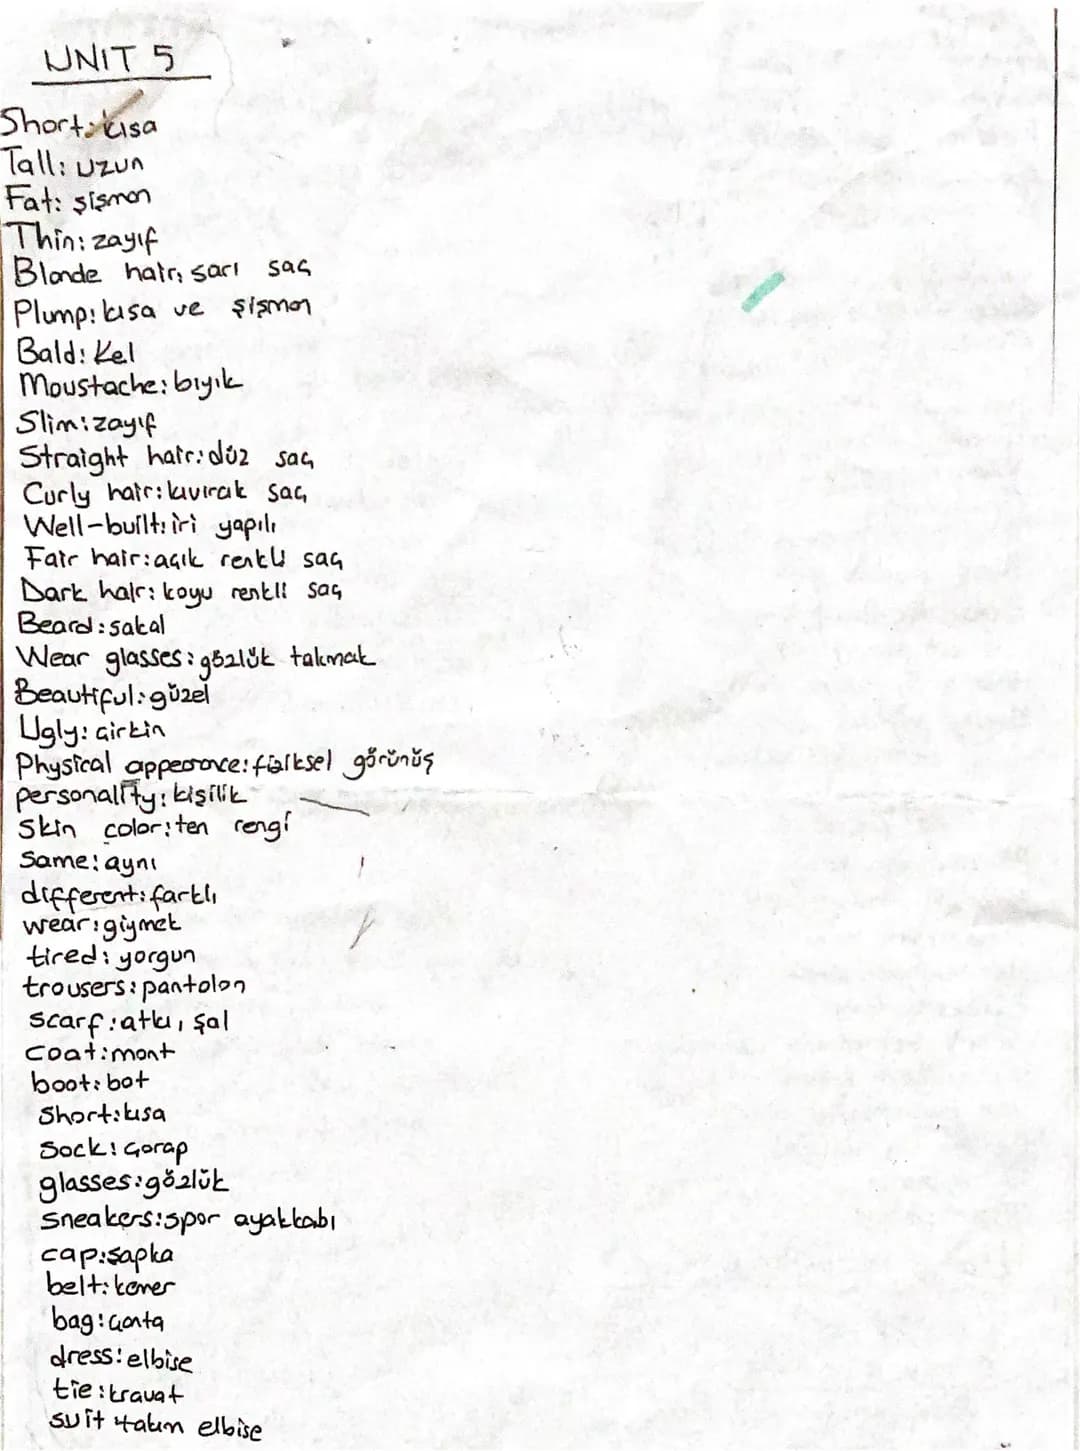 UNIT 5
Short: kısa
Tall: uzun
Fat: şişman
Thin: zayıf
Blonde hair: sarı saç
Plump: kısa ve şişman
Bald: Kel
Moustache: bıyık
Slim: zayıf
Straight hair: düz saç
Curly hair: kıvırcık saç
Well-built: iri yapılı
Fair hair: açık renkli saç
Dark hair: koyu renkli saç
Beard: sakal
Wear glasses: gözlük takmak
Beautiful: güzel
Ugly: çirkin
Physical apperance: fiziksel görünüş
personality: kişilik
Skin color: ten rengi
Same: aynı
different: farklı
wear: giymek
tired: yorgun
trousers: pantolon
scarf: atkı, şal
coat: mont
boot: bot
Short: kısa
Sock: Çorap
glasses: gözlük
Sneakers: spor ayakkabı
cap: şapka
belt: kemer
bag: çanta
dress: elbise
tie: kravat
suit takım elbise